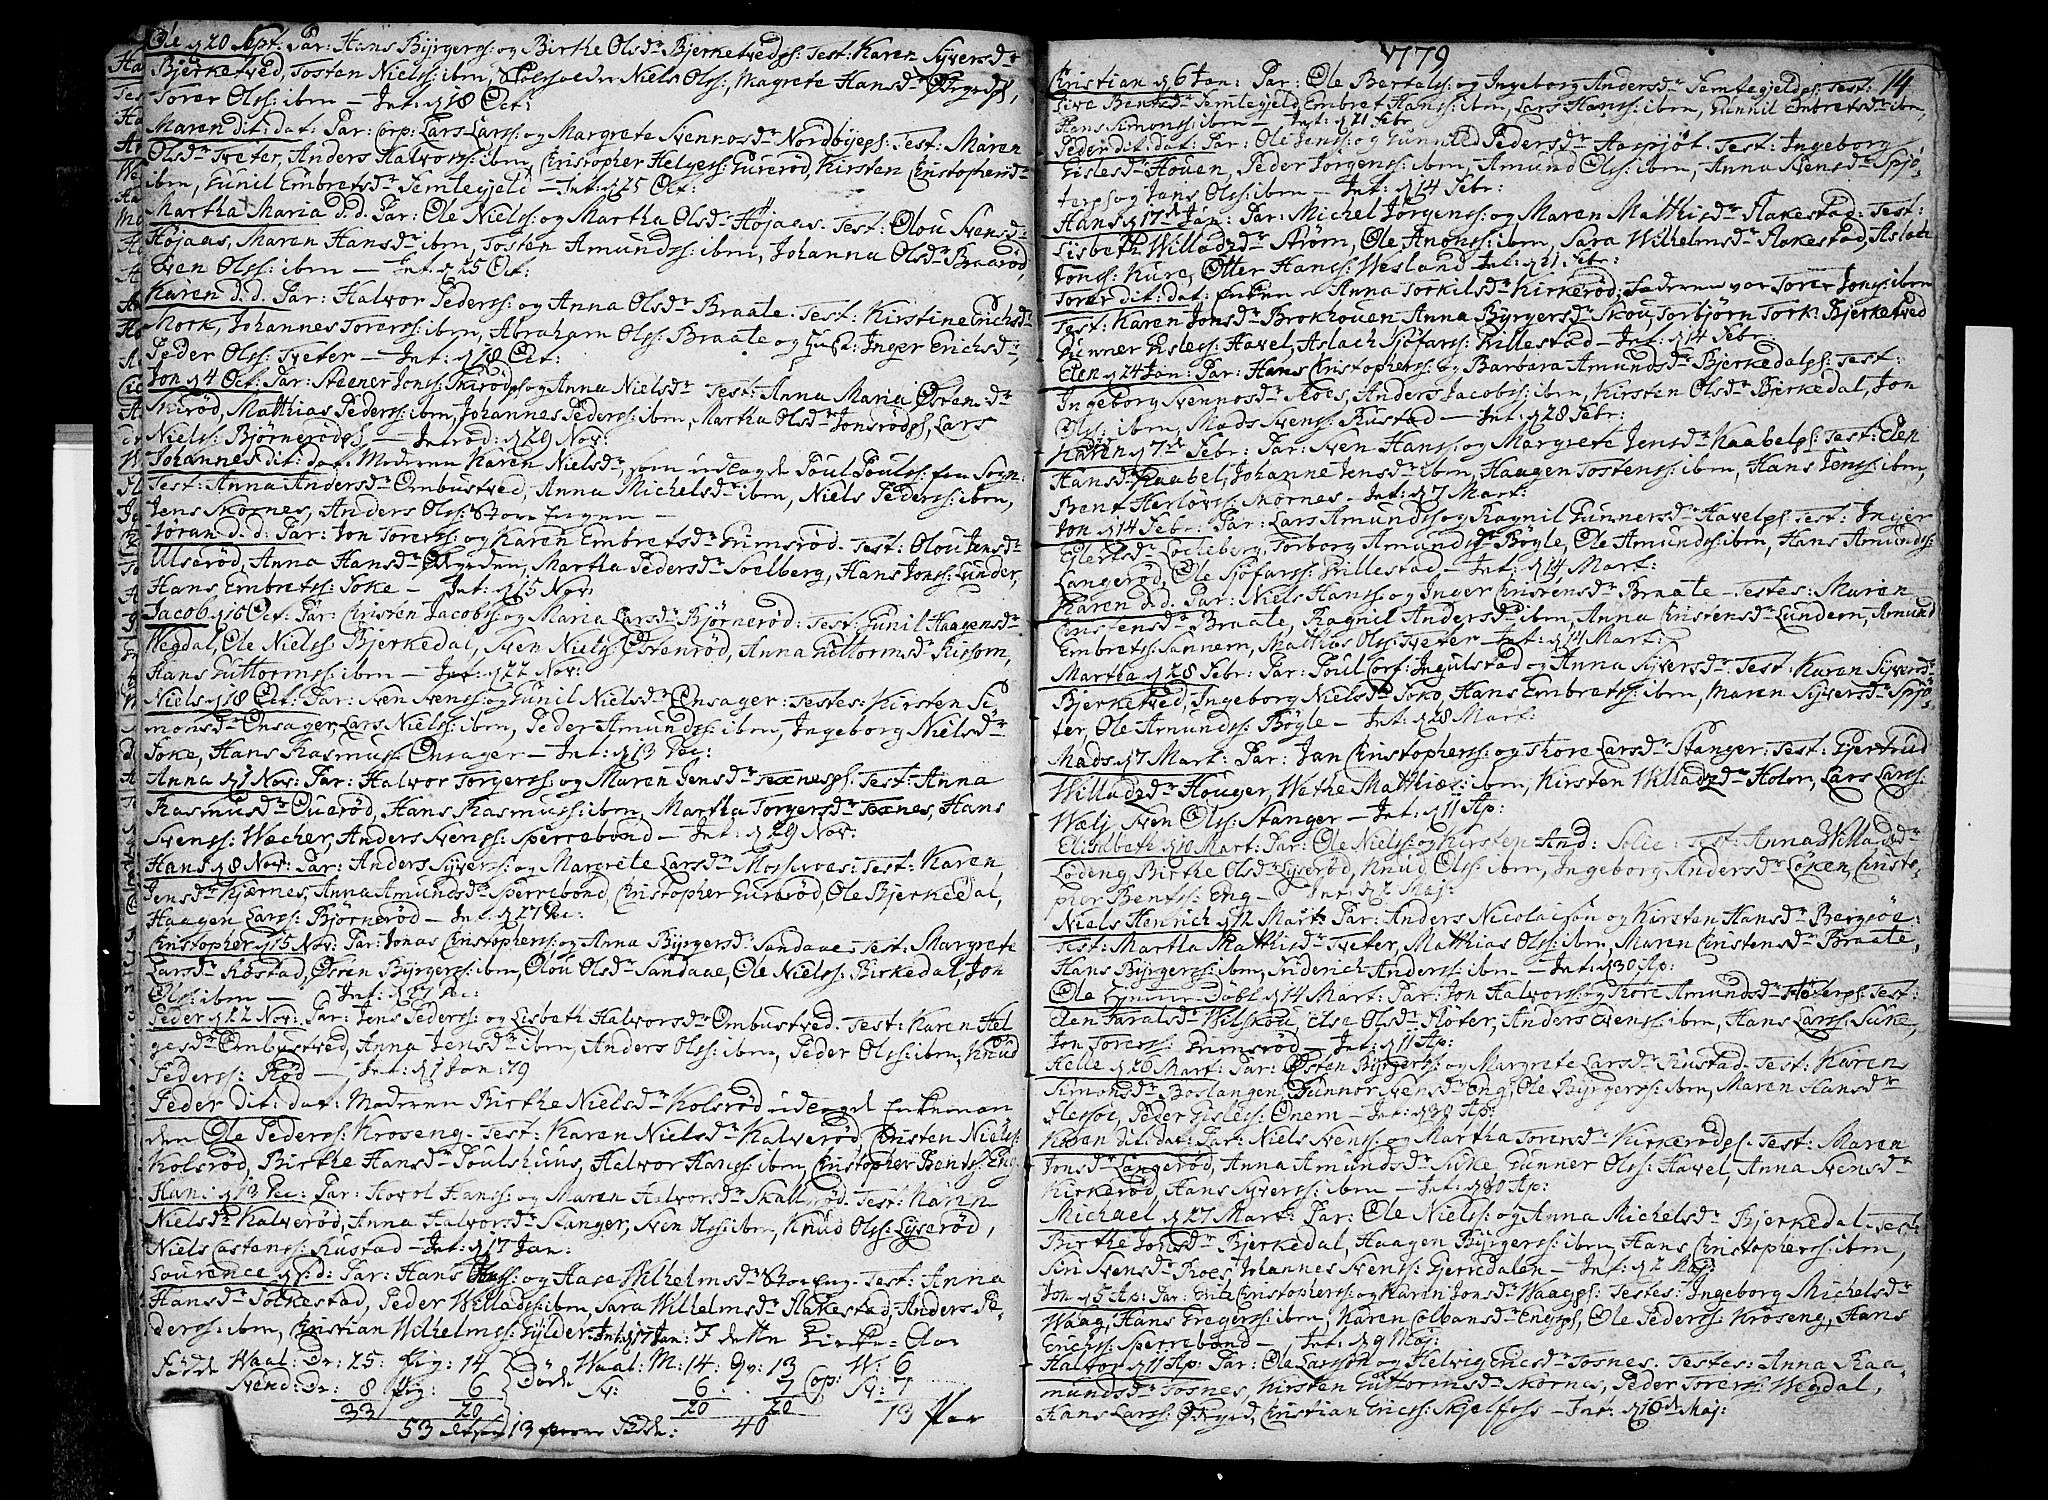 Ole d 20 Sept: Par: Hans Byrgers: og Birthe Olsdr Bjerketvedps: Test: Karen Syversdr
Bjerketved, Tosten Niels: ibm, Niels Ols: Magrete Hansdr
Torer Ols: ibm — Int: d 18 Oct:
Maren dit: dat: Par: Corp: Lars Lars: og Margrete Svennosdr Nordbyeps: Test: Maren
Olsdr Tveter, Anders Halvors: ibm, Christopher Helges: Gurerød, Kirsten Christophersdr
ibm, Gunil Embretsdr Semlegjeld — Int: d 25 Oct:
Martha Maria d.d. Par: Ole Niels: og Martha Olsdr Højaas. Test: Olou Svensdr
Højaas, Maren Hansdr ibm, Tosten Amunds: ibm, Johanna Olsdr Braarød,
Sven Ols: ibm — Int: d 25 Oct:
Karen d.d. Par: Halvor Peders: og Anna Olsdr Braate. Test: Kirstine Erichsdr
Mork, Johannes Torers: ibm, Abraham Ols: Braate og Inger Erichsdr,
Peder Ols: Tveter — Int: d 18 Oct:
Jon d 4 Oct: Par: Steener Jons: Skirødps og Anna Nielsdr Test: Anna Maria Osrensdr
Skirød, Matthias Peders: ibm, Johannes Peders: ibm, Martha Olsdr Jonsrødps, Lars
Niels: Bjørnerødps, — Introd: d 29 Nov:
Johannes dit: dat: Moderen Karen Nielsdr, som udlagde Poul Pouls: fra Sogn:
Test: Anna Andersdr Ombustved, Anna Michelsdr ibm, Niels Peders: ibm,
Jens Skornes, Anders Ols: Store Engen —
Jøran d.d. Par: Jon Torers: og Karen Embretsdr Grimsrød. Test: Olou Jensdr
Ulserød, Anna Hansdr, Martha Pedersdr Soelberg, Hans Jons: Lunder,
Hans Embrets: Soke — Int: d 15 Nov:
Jacob d 16 Oct: Par: Christen Jacobs: og Maria Larsdr Bjørnerød: Test: Gunil Haagensdr
Wegdal, Ole Niels: Bjerkedal, Sven Niels: Osrenrød, Anna Guttormsdr Sissom,
Hans Guttorms: ibm — Int: d 22 Nov:
Niels d 18 Oct: Par: Sven Svens: og Gunil Nielsdr Onsager: Testes: Kirsten Si-
monsdr Onsager, Lars Niels: ibm, Peder Amunds: ibm, Ingeborg Nielsdr
Soke, Hans Rasmus: Onsager — Int: d 13 Dec:
Anna d 7 Nov: Par: Halvor Torgers: og Maren Jensdr Texnesps: Test: Anna
Rasmusdr Ouerød, Hans Rasmus: ibm, Martha Torgersdr Texnes, Hans
Svens: Wacher, Anders Svens: Sperrebond — Int: d 29 Nov:
Hans d 8 Nov: Par: Anders Syvers: og Margrete Larsdr Moskroes: Test: Karen
Jensdr Kjærnes, Anna Amundsdr Sperrebond, Christopher Gurerød, Ole Bjerkedal,
Haagen Lars: Bjørnerød — Int: d 27 Dec:
Christopher d 15 Nov: Par: Jonas Christophers: og Anna Byrgersdr Sandaae. Test: Margrete
Larsdr Røstad, Osren Byrgers: ibm, Olou Olsdr Sandaae, Ole Niels: Birkedal, Jon
Ols: ibm — Int: d 27 Dec:
Peder d 22 Nov: Par: Jens Peders: og Lisbeth Halvorsdr Ombustved. Test: Karen Hel-
gesdr Ombustved, Anna Jensdr ibm, Anders Ols: ibm, Peder Ols: ibm, Knud
Peders: Rød — Int: d 1 Jan: 79
Peder dit: dat: Moderen Birthe Nielsdr Kolsrød udlagde Enkeman
den Ole Peders: Kroseng. Test: Karen Nielsdr Kalverød, Christen Niels:
Kolsrød, Birthe Hansdr Poulshuus, Halvor Hans: ibm, Christopher Bents: Eng
Hans d 13 Dec: Par: Hovol Hans: og Maren Halvorsdr Skallerød. Test: Karen
Nielsdr Kalverød, Anna Halvorsdr Stanger, Sven Ols: ibm, Knud Ols: Lyserød,
Niels Castens: Rustad — Int: d 17 Jan:
Lourence d s: d: Par: Hans og Aase Wilhelmsdr Storeng. Test: Anna
Hansdr Solkestad, Peder Willads: ibm, Sara Wilhelmsdr Flakestad, Anders Pe-
ders: ibm, Christian Wilhelms: Gylder. Int: d 17 Jan: I dette Kirke-Aar
Fødde Waal: Dr: 25: Pig: 14 Døde Waal: M: 14: Qv: 13 Cop: W: 6
Svend: Dr: 8 Pig: 6 Sv: 6 7 Sv: 7
33 20 20 20 13 Par
53 13 fleere Fødde: 40
1779
14
Christian d 6 Jan: Par: Ole Bertels: og Ingeborg Andersdr Semlegjeldps: Test:
Sive Bentsdr Semlegjeld, Embret Hans: ibm, Lars Hans: ibm, Gunnil Embretsdr ibm,
Hans Simons: ibm — Int: d 21 Febr
Peder dit: dat: Par: Ole Jens: og Gunnild Pedersdr Aaspjøt. Test: Ingeborg
Gislesdr Houen, Peder Jorgens: ibm, Amund Ols: ibm, Anna Svensdr Spjo-
terps og Jans Ols: ibm — Int: d 14 Febr:
Hans d 17de Jan: Par: Michel Jorgens: og Maren Matthisdr Flakestad: Test:
Lisbeth Willadzdr Strøm, Ole Anons: ibm, Sara Wilhelmsdr Flakestad, Aslach
Jons: Kure, Otter Hans: Wesland Int: d 21 Febr:
Torer dit: dat: Enken Anna Torkilsdr Kirkerød; Faderen var Torer Jons: ibm
Test: Karen Jonsdr Brokhouen, Anna Byrgersdr Skou, Torbjörn Tork: Bjerketved
Gunner Gisles: Havel, Aslach Sjøfars: Killestad — Int: d 14 Febr
Elen d 24 Jan: Par: Hans Christophers: og Barbara Amundsdr Bjerkedalps: Test:
Ingeborg Svennosdr Roes, Anders Jacobs: ibm, Kirsten Olsdr Bjerkedal, Jon
Ols: ibm, Mads Svens: Rustad — Int: d 28 Febr:
Karen d 7de Febr: Par: Sven Hans: og Margrete Jensdr Kaabelps: Test: Elen
Hansdr Kaabel, Johanne Jensdr ibm, Haagen Tostens: ibm, Hans Jons: ibm,
Bent Herlovs: Skornes — Int: d 7 Mart:
Jon d 14 Febr: Par: Lars Amunds: og Ragnil Gunnersdr Havelps: Test: Inger
Eglertsdr Lodeberg, Torborg Amundsdr Bøgle, Ole Amunds: ibm, Hans Amunds:
Langerød, Ole Sjøfars: Killestad — Int: d 14 Mart:
Karen d.d. Par: Niels Hans: og Inger Christensdr Braate — Testes: Maren
Christensdr Braate, Ragnil Andersdr ibm, Anna Christensdr Lundern, Amund
Embrets: Sannem, Mathias Ols: Tveter — Int: d 14 Mart:
Martha d 28 Febr: Par: Poul Corf: Ingulstad og Anna Syversdr Test: Karen Syversdr
Bjerketved, Ingeborg Nielsdr Soko, Hans Embrets: ibm, Maren Syversdr Spjo-
ter, Ole Amunds: Bøgle — Int: d 28 Mart:
Mads d 7 Mart: Par: Jan Christophers: og Thore Larsdr Stanger: Test: Gjertrud
Willadzdr Houger, Wethe Matthias: ibm, Kirsten Willadzdr Holm, Lars Lars:
Wælj, Sven Ols: Stanger — Int: d 11 Ap:
Elisabeth d 10 Mart: Par: Ole Niels: og Kirsten And: Solie: Test: Anna Willadsdr
Lødeng, Birthe Olsdr Lyserød, Knud Ols: ibm, Ingeborg Andersdr Løken, Christo-
pher Bents: Eng — Int: d 2 Maj:
Niels Henrich d 12 Mart: Par: Anders Nicolaison og Kirsten Hansdr Bergsøe:
Test: Martha Matthisdr Tveter, Matthias Ols: ibm, Maren Christensdr Braate,
Hans Byrgers: ibm, Friderich Anders: ibm — Int: d 30 Ap:
Ole Døbt d 14 Mart: Par: Jon Halvors: og Thore Amundsdr Fløterps: Test:
Elen Haralsdr Wilskou, Else Olsdr Fløter, Anders Svens: ibm, Hans Lars: Suke,
Jon Torers: Grimsrød — Int: d 11 Ap:
Helle d 20 Mart: Par: Østen Byrgers: og Margrete Larsdr Rustad. Test: Karen
Simonsdr Boslangen, Gunnor Svensdr Eng, Ole Byrgers: ibm, Maren Hansdr
Flessøe, Peder Gisles: Onem — Int: d 30 Ap:
Karen dit: dat: Par: Niels Svens: og Martha Torersdr Kirkerødps. Test: Maren
Jonsdr Langerød, Anna Amundsdr Suke, Gunner Ols: Havel, Anna Svensdr
Kirkerød, Hans Syvers: ibm — Int: d 30 Ap:
Michael d 27 Mart: Par: Ole Niels: og Anna Michelsdr Bjerkedal. Test:
Birthe Jonsdr Bjerkedal, Haagen Byrgers: ibm, Hans Christophers: ibm,
Siri Svensdr Roes, Johannes Svens: Gjerredalen — Int: d 2 Maj:
Jon d 5 Ap: Par: Erik Christophers: og Karen Jonsdr Waagps: Testes: Ingeborg Michelsdr
Waag, Hans Gregers: ibm, Karen Colbensdr Engps, Ole Peders: Kroseng, Hans
Erichs: Sperrebond — Int: d 9 Maj:
Halvor d 11 Ap: Par: Ole Larsson og Helvig Ericsdr Tosnes. Testes: Anna Raa-
mundsdr Tosnes, Kirsten Guttormsdr Skornes, Peder Torers: Wegdal,
Hans Lars: Øxyrd, Christian Erics: Skjelfoss — Int: d 18de Maj: